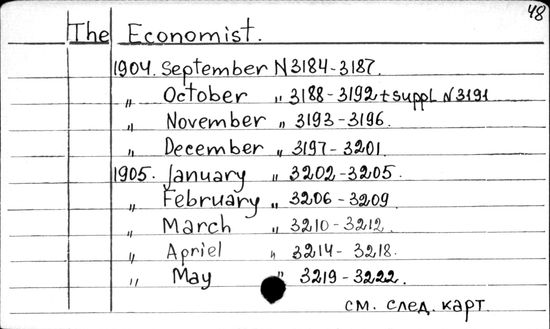 48
The Economist.
1904. September N 3184-3187.
„ October „ 3188-3192 + suppl. N 3191
„ November „ 3193-3196.
„ December „ 3197-3201.
1905. January „ 3202-3205.
„ February „ 3206-3209
„ March „ 3210-3212
„ Apriel „ 3214-3218.
„ May „ 3219-3222.
см. след. карт.